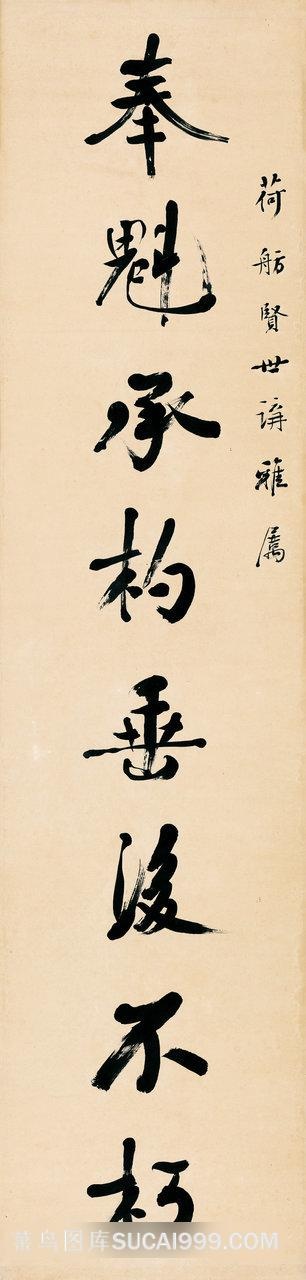 荷舫賢世講雅屬
奉魁承杓垂後不朽
菜鸟图库SUCAI999.COM